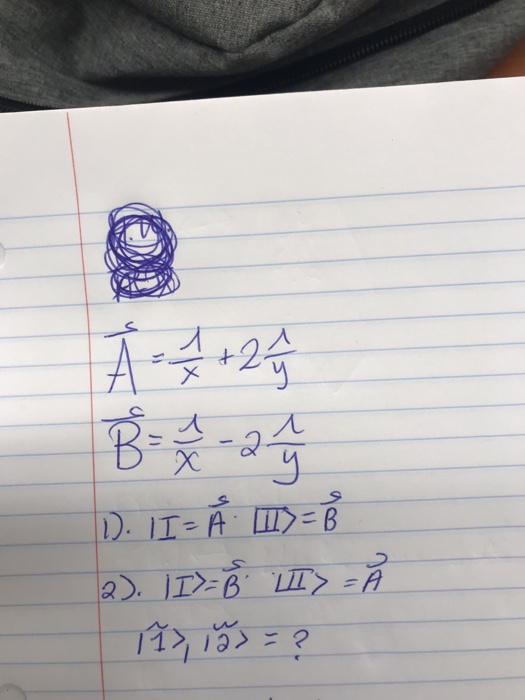 A⃗ = 1/x + 2 1/y
B⃗ = 1/x - 2 1/y
1). |I = A⃗ · |II> = B⃗
2). |I> = B⃗ · |II> = A⃗
|1̃>, |2̃> = ?